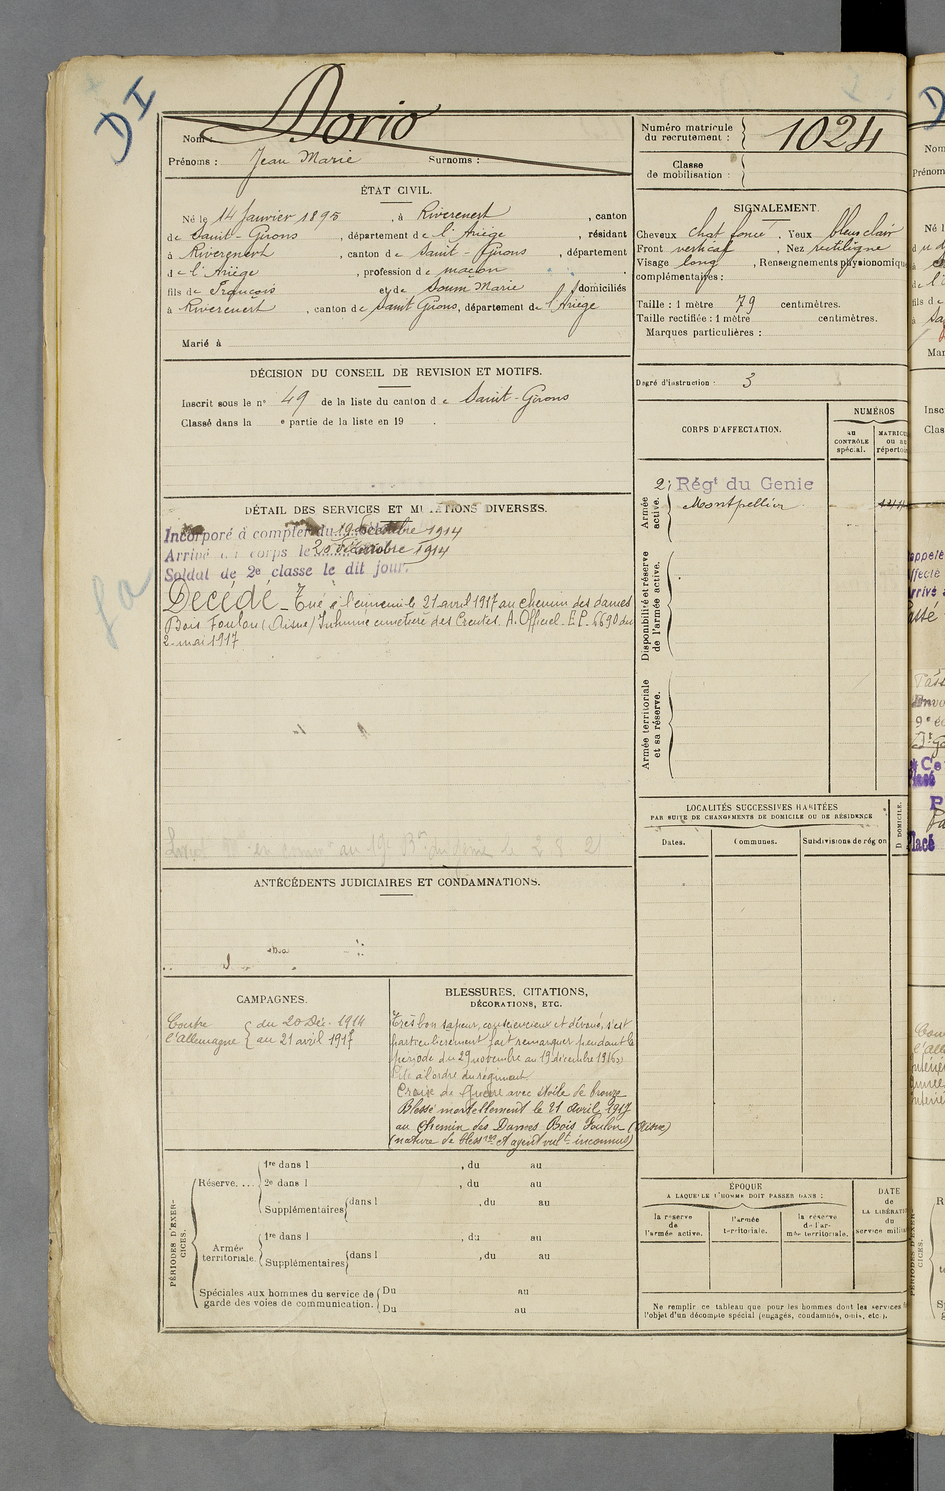 D I
Dorio
Nom :
Prénoms : Jean Marie Surnoms :
Numéro matricule
du recrutement : 1024
Classe
de mobilisation :
ÉTAT CIVIL.
Né le 14 Janvier 1895, à Riverenert, canton
de Saint-Girons, département de l'Ariège, résidant
à Riverenert, canton de Saint-Girons, département
de l'Ariège, profession de maçon.
fils de François et de Soum Marie domiciliés
à Riverenert, canton de Saint Girons, département de l'Ariège
Marié à
SIGNALEMENT.
Cheveux chat foncé. Yeux bleus clair
Front vertical, Nez rectiligne
Visage long, Renseignements physionomiques
complémentaires :
Taille : 1 mètre 79 centimètres.
Taille rectifiée : 1 mètre centimètres.
Marques particulières :
Degré d'instruction : 3
DÉCISION DU CONSEIL DE REVISION ET MOTIFS.
Inscrit sous le n° 49 de la liste du canton de Saint-Girons
Classé dans la e partie de la liste en 19 .
CORPS D'AFFECTATION.
NUMÉROS
au
CONTRÔLE
spécial.
MATRICULE
ou au
répertoire
Armée
active.
2e Régt du Genie
Montpellier
Disponibilité et réserve
de l'armée active.
Armée territoriale
et sa réserve.
DÉTAIL DES SERVICES ET MUTATIONS DIVERSES.
Incorporé à compter du 19 décembre 1914
Arrivé au corps le 20 décembre 1914
Soldat de 2e classe le dit jour.
Décédé - Tué à l'ennemi le 21 avril 1917 au chemin des dames
Bois Foulon (Aisne) Inhumé cimetière des Creutes. A. Officiel. E.P. 6690 du
2 mai 1917
LOCALITÉS SUCCESSIVES HABITÉES
PAR SUITE DE CHANGEMENTS DE DOMICILE OU DE RÉSIDENCE
Dates. Communes. Subdivisions de région D. DOMICILE.
ANTÉCÉDENTS JUDICIAIRES ET CONDAMNATIONS.
CAMPAGNES.
Contre
l'Allemagne
du 20 Déc. 1914
au 21 avril 1917
BLESSURES, CITATIONS,
DÉCORATIONS, ETC.
Très bon sapeur, consciencieux et dévoué, s'est
particulièrement fait remarquer pendant la
période du 29 novembre au 19 décembre 1916.
Cité à l'ordre du régiment.
Croix de Guerre avec étoile de bronze
Blessé mortellement le 21 Avril 1917
au Chemin des Dames Bois Foulon (Aisne)
(nature de bless res et agent vul t inconnus)
PÉRIODES D'EXER-
CICES.
Réserve. ...
1re dans l , du au
2e dans l , du au
Supplémentaires dans l , du au
Armée
territoriale.
1re dans l , du au
Supplémentaires dans l , du au
Spéciales aux hommes du service de
garde des voies de communication.
Du au
Du au
ÉPOQUE
A LAQUELLE L'HOMME DOIT PASSER DANS :
la réserve
de
l'armée active.
l'armée
territoriale.
la réserve
de l'ar-
mée territoriale.
DATE
de
LA LIBÉRATION
du
service militaire
Ne remplir ce tableau que pour les hommes dont les services
l'objet d'un décompte spécial (engagés, condamnés, omis, etc.).